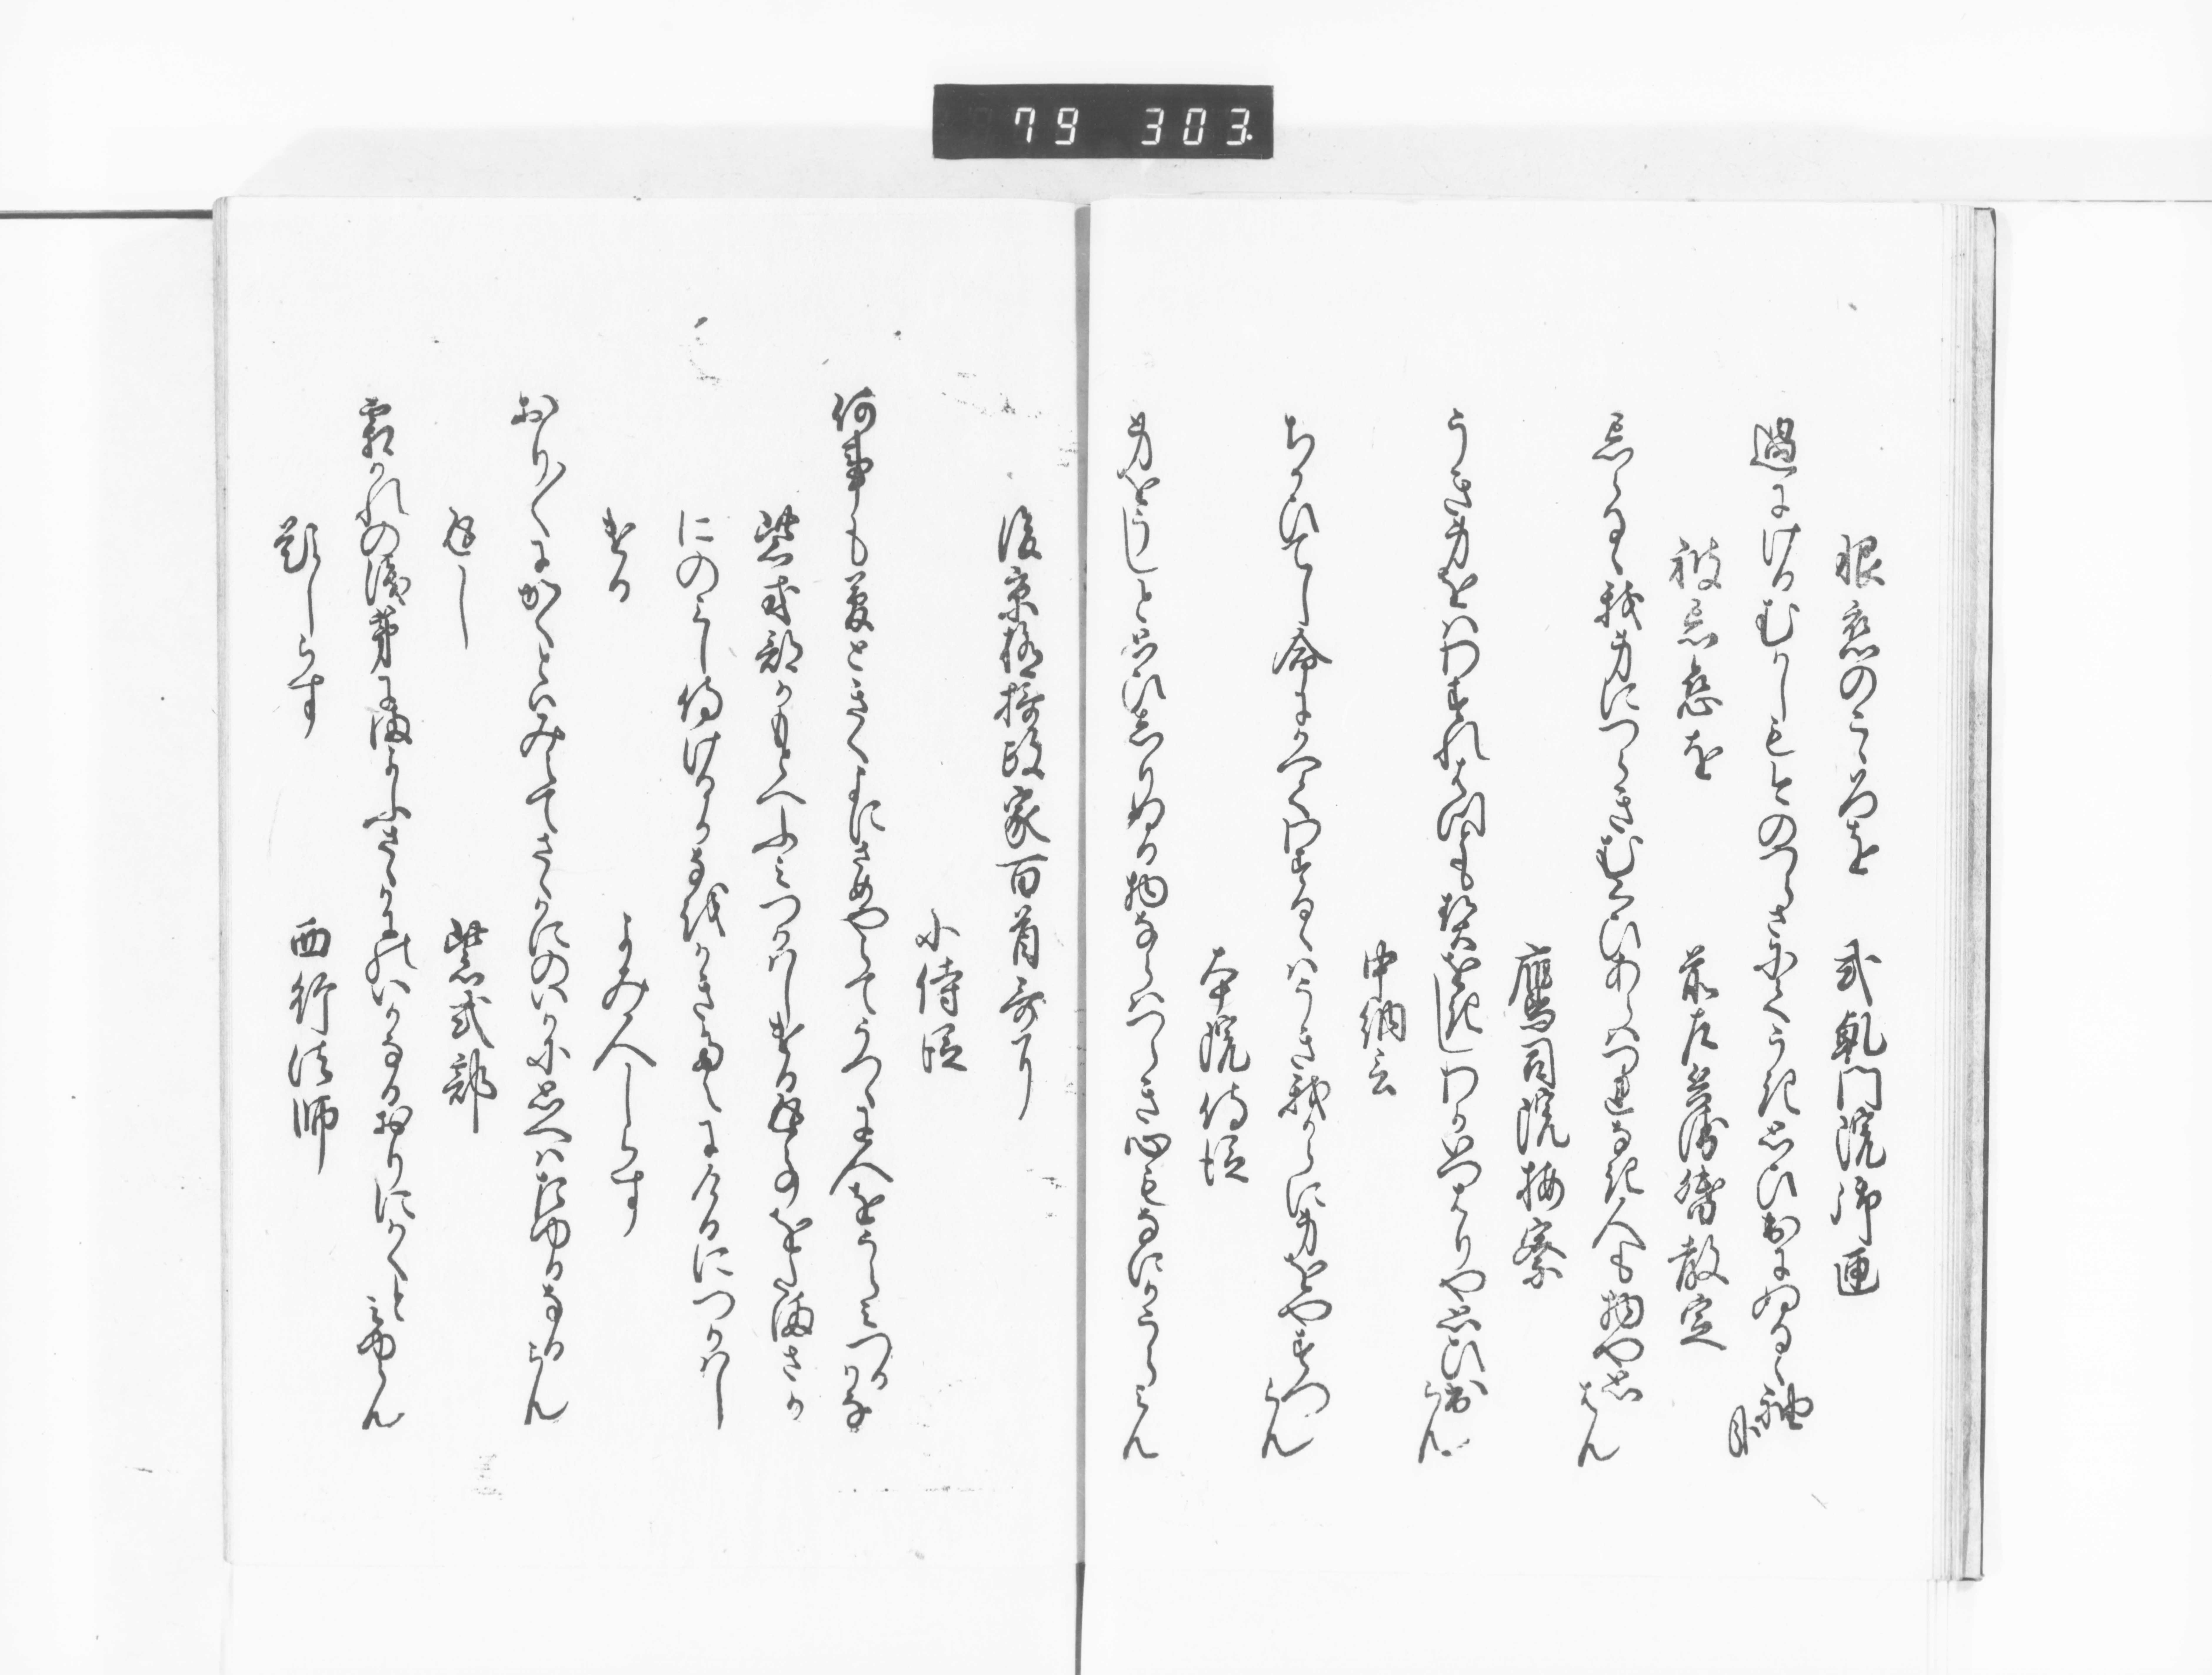 79 303
恨恋のこゝろを 式乾門院御匣
過にけるむかしもいとのつらさまてうき思ひ出にぬるゝ袖哉
被忘恋を 前左兵衛督教定
忘らるゝ我身につらきむくひあらはつれなき人も物や思はん
鷹司院按察
うき身をはわすれはつとも契をきしわかいつはりや思ひ出らん
中納言
ちかひてし命にかへてわするゝはうき我からに身をやすつらん
本院侍従
身をうしと思ひしりぬる物ならはつらき心もなにかうらみん
後京極摂政家百首哥に
小侍従
何事も夢ときくよにさめやらてうつゝに人をうらみつる哉
紫式部かもとへふみつかはしける返事をたまさか
にのみし侍けるか なをかきたえにけるにつかはし
ける よみ人しらす
おり〳〵にかくとはみえてさゝかにのいかに思へはたゆるなるらん
返し 紫式部
霜かれの浅茅にまかふさゝかにのいかなるおりにかくとみゆらん
題しらす 西行法師